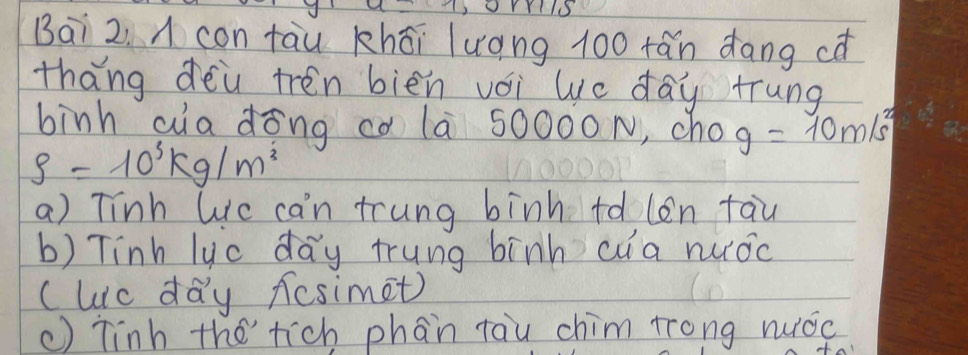 Bài 2, 1 con tàu khối lượng 100 tấn đang cđ
thẳng đều trên biển với lực đẩy trung
bình của động cơ là 50000N, cho g = 10m/s²
ρ = 10³kg/m³
a) Tính lực cản trung bình td lên tàu
b) Tính lực đẩy trung bình của nước
(lực đẩy Ácsimét)
c) Tính thể tích phần tàu chìm trong nước